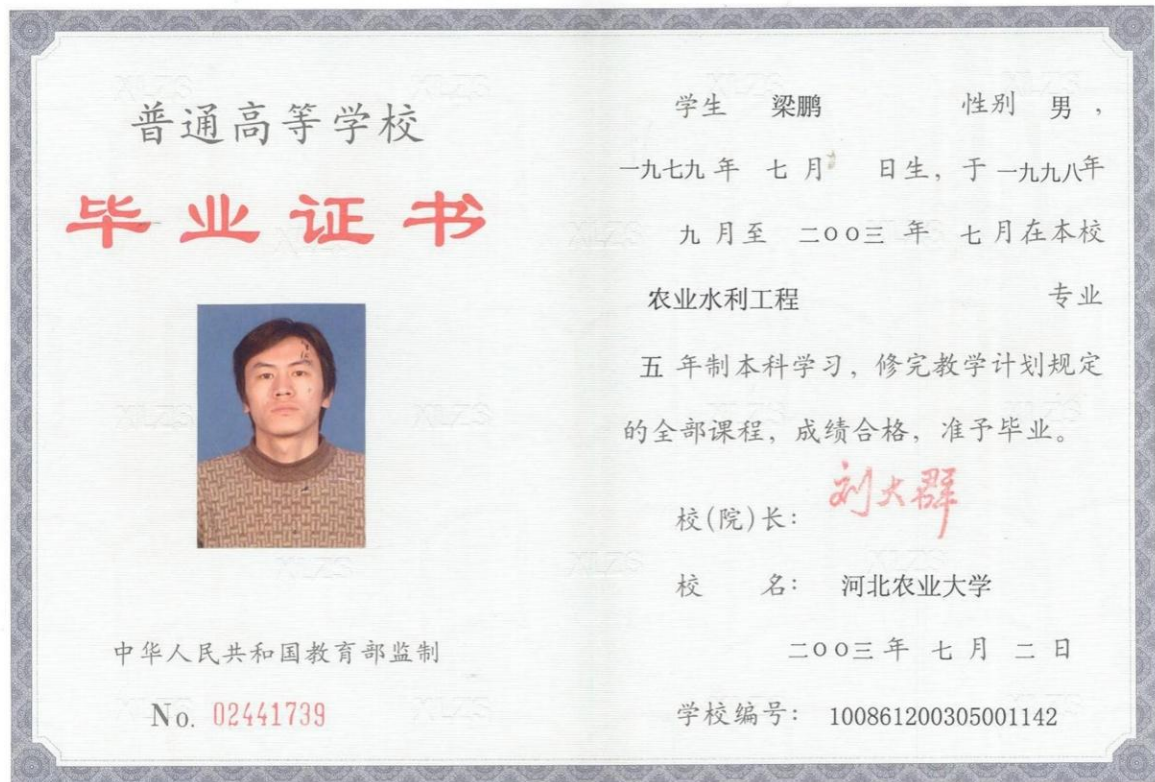 普通高等学校
毕业证书
中华人民共和国教育部监制
No. 02441739
学生 梁鹏 性别 男，
一九七九年 七月 日生，于一九九八年
九月至 二〇〇三 年 七月在本校
农业水利工程 专业
五 年制本科学习，修完教学计划规定
的全部课程，成绩合格，准予毕业。
校(院)长： 刘大群
校 名： 河北农业大学
二〇〇三年 七月 二日
学校编号： 100861200305001142